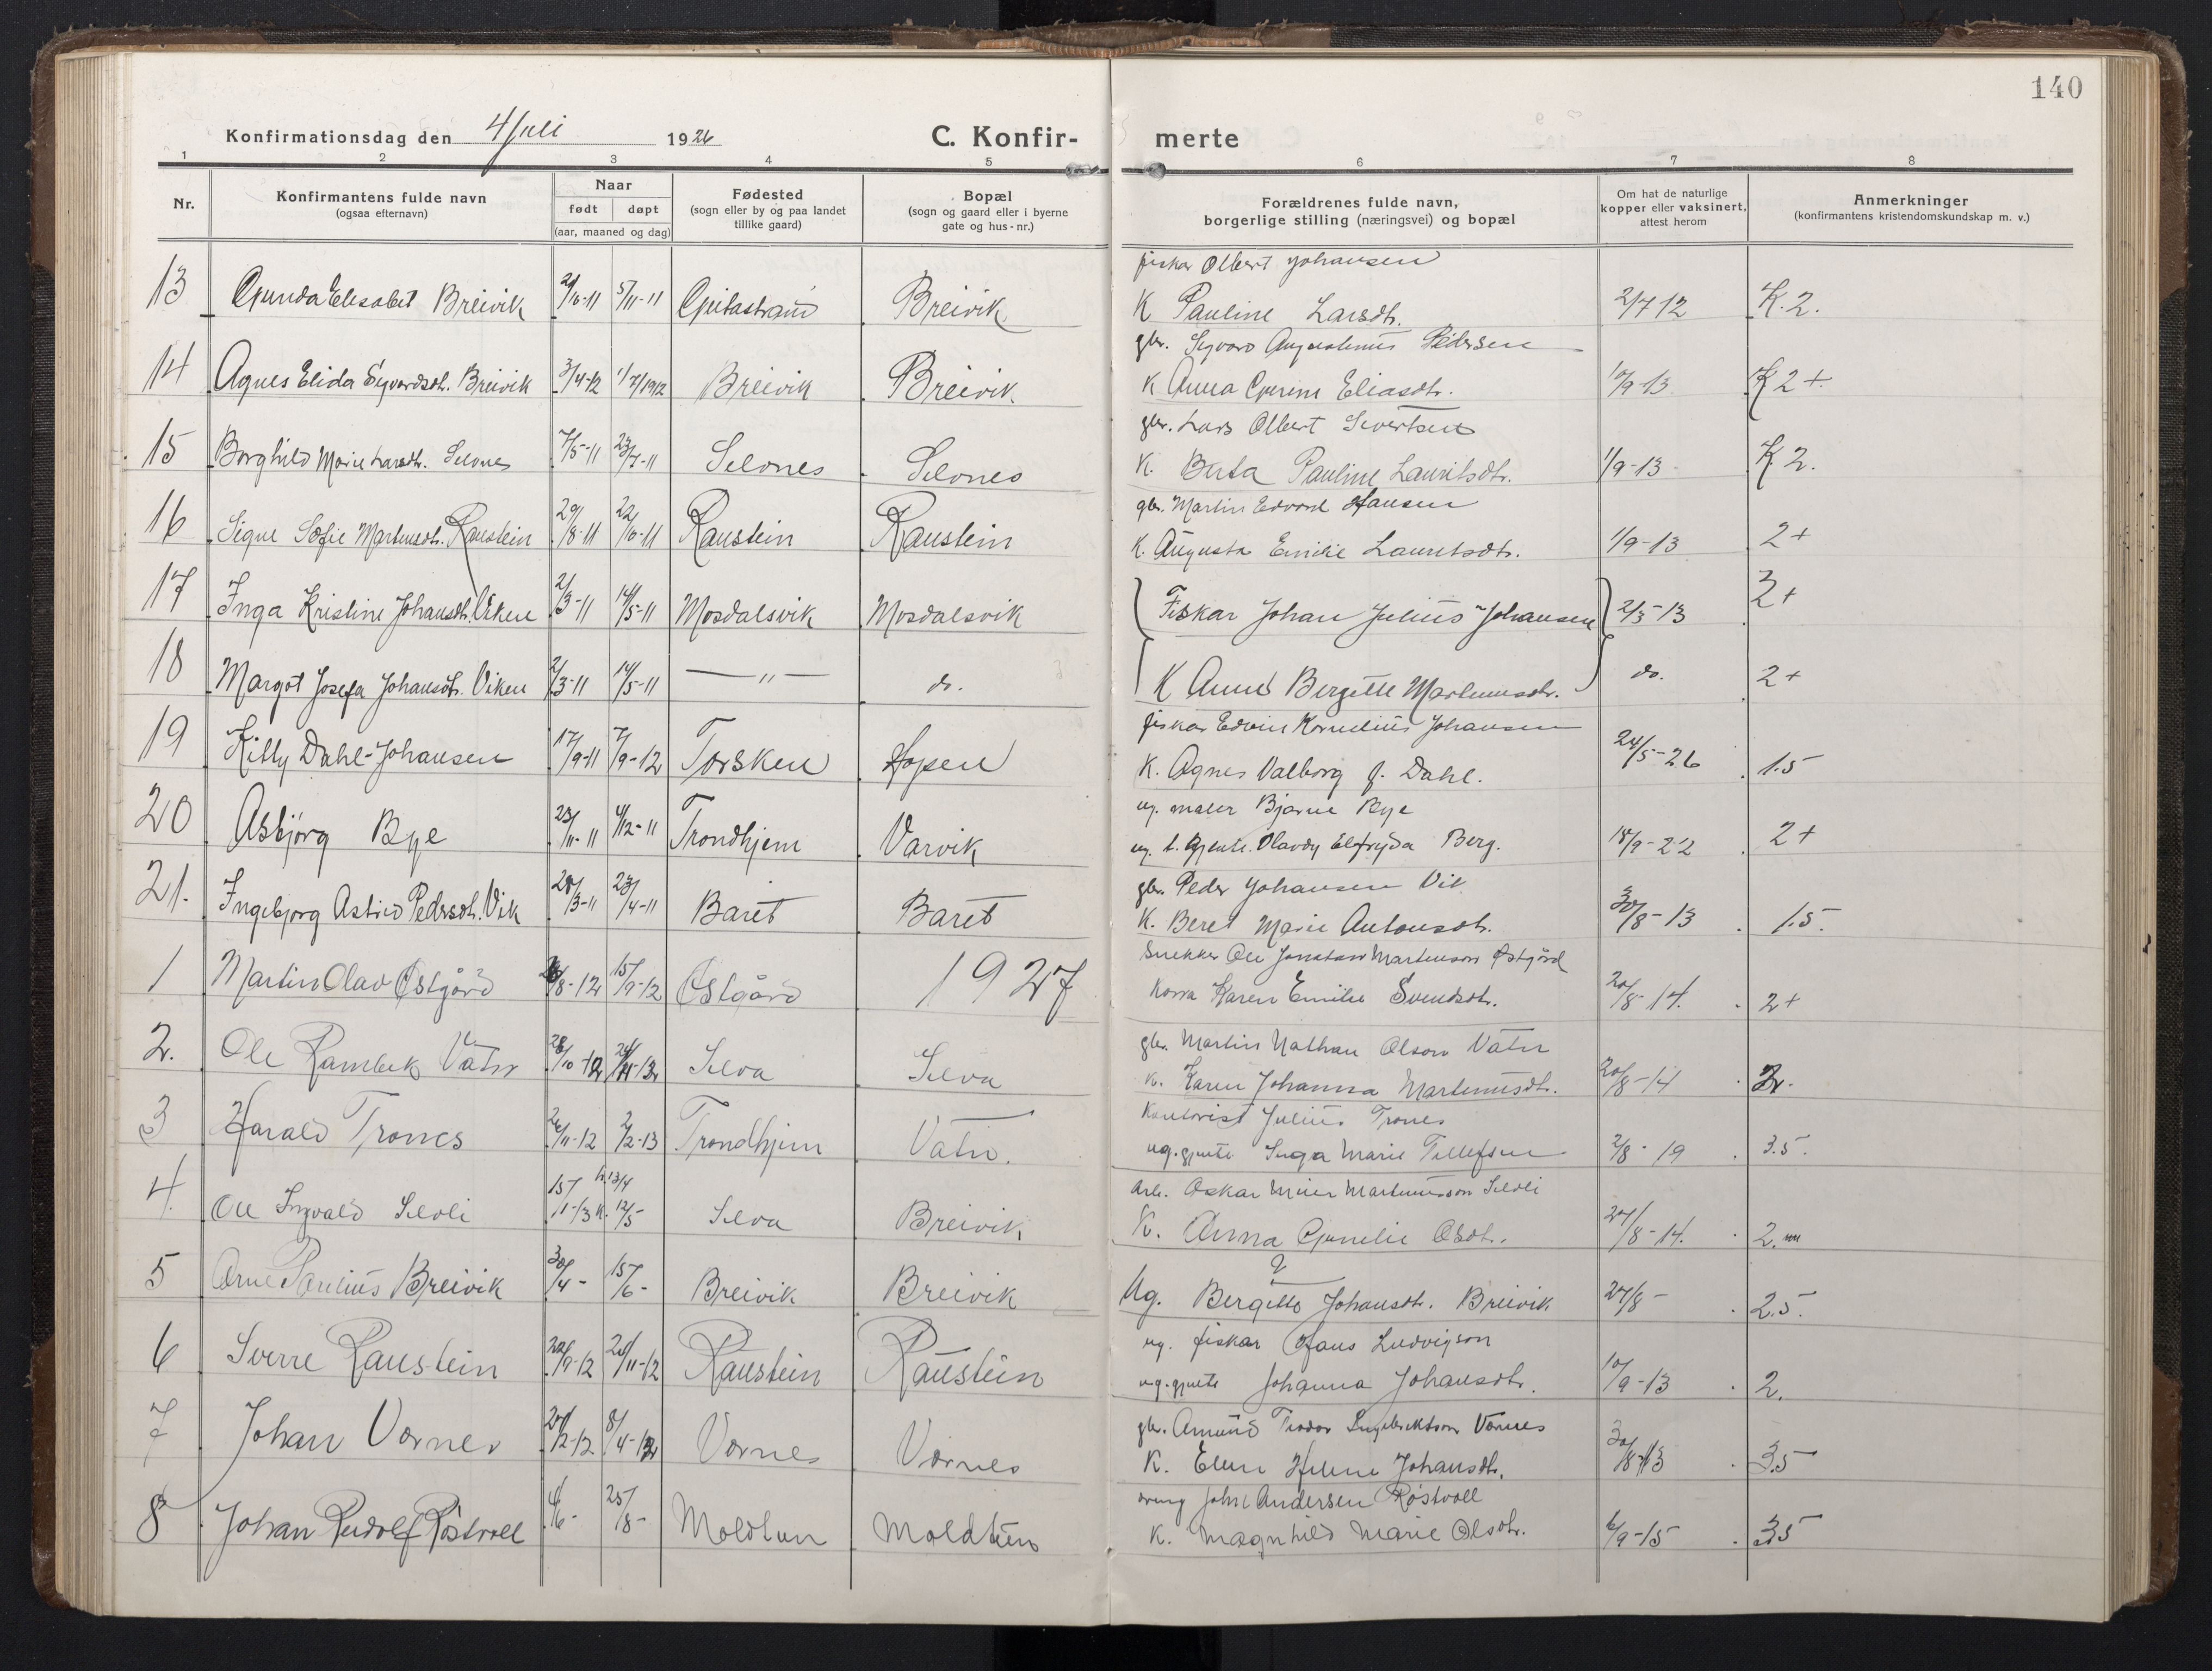 140
Konfirmationsdag den 4 Juli 1926
C. Konfir-
merte
1 2 3 4 5 6 7 8
Nr.
Konfirmantens fulde navn
(ogsaa efternavn)
Naar
født døpt
(aar, maaned og dag)
Fødested
(sogn eller by og paa landet
tillike gaard)
Bopæl
(sogn og gaard eller i byerne
gate og hus-nr.)
Forældrenes fulde navn,
borgerlige stilling (næringsvei) og bopæl
Om hat de naturlige
kopper eller vaksinert,
attest herom
Anmerkninger
(konfirmantens kristendomskundskap m. v.)
fiskar Olbert Johansen
13 Gunda Elisabet Breivik 2/10-11 5/11-11 Breivik K Pauline Larsdtr. 2/7 12 K. 2.
gbr. Sigvard Augustinus Pedersen
14 Agnes Elida Sigvardsdtr. Breivik 3/4-12 1/7/1912 Breivik Breivik K Anna Eliasdtr. K 2+
gbr. Lars Olbert Sivertsen
15 Borghild Marie Larsdtr. Selvnes 7/5-11 23/7-11 Selvnes Selvnes K. Berta Pauline Lauritsdtr. 1/9-13 K 2.
gbr. Martin Edvard Hansen
16 Signe Sofie Martinsdtr. Raustein 29/8-11 22/10-11 Raustein Raustein K. Augusta Emilie Lauritsdtr. 1/9-13 2+
17 Inga Kristine Johansdtr. Viken 2/3-11 14/5-11 Mosdalsvik Mosdalsvik Fiskar Johan Julius Johansen 2/5-13 2+
18 Margot Josefa Johansdtr. Viken 2/3-11 14/5-11 —"— do. K Anne Bergitte Martinusdtr. do. 2+
fiskar Edvin Kornelius Johansen
19 Killy Dahl-Johansen 17/9-11 7/9-12 Torsken Hopen K. Agnes Valborg f. Dahl. 24/5-26 1.5
ug. maler Bjarne Bye
20 Asbjørg Bye 23/11-11 4/12-11 Trondhjem Varvik ug. t. gjente. Olavdy Elfryda Berg. 18/9-22 2+
gbr. Peder Johansen Vik
21. Ingebjørg Astrid Pedersdtr. Vik 28/3-11 23/4-11 Baret Baret K. Beret Marie Antonsdtr. 30/8-13 1.5.
Snekker Ole Jonatan Martinson Østgård
1 Martin Olav Østgård /8-12 15/9-12 Østgård 1927 Kona Karen Emilie Svendsdtr. 20/8-14. 2+
gbr. Martin Nathan Olson Vatn
2. Ole Rambek Vatn 28/10-12 Selva Selva K. Karen Johanna Martinusdtr. 20/8-14 2.
Kontorist Julius Trones
3 Harald Trones 26/11-12 2/2-13 Trondhjem Vatn. ug. gjente Inga Marie Tellefsen 2/8-19 3.5.
Arb. Oskar Meier Martinusson Selvli
4. Ole Ingvald Selvli 15/1-13 h. 13/4 k. 12/5 Selva Breivik K. Anna Olsdtr. 27/8-14. 2.
?
5 Arne Paulius Breivik 30/4- 15/6- Breivik Breivik Ug. Bergitte Johansdtr. Breivik 27/8- 2.5.
ug. fiskar Hans Ludvigson
6 Sverre Raustein 22/9-12 24/11-12 Raustein Raustein ug. gjente Johanna Johansdtr. 10/9-13 2.
gbr. Amund Teodor Ingebriktson Vornes
7 Johan Vornes 27/12-12 8/4-13 Vornes Vornes K. Elen Helene Johansdtr. 30/8-13 3.5
dreng John Andersen Røstvoll
8 Johan Rudolf Røstvoll 4/6- 25/8- Moldtun Moldtun K. Magnhild Marie Olsdtr. 6/9-15 3.5